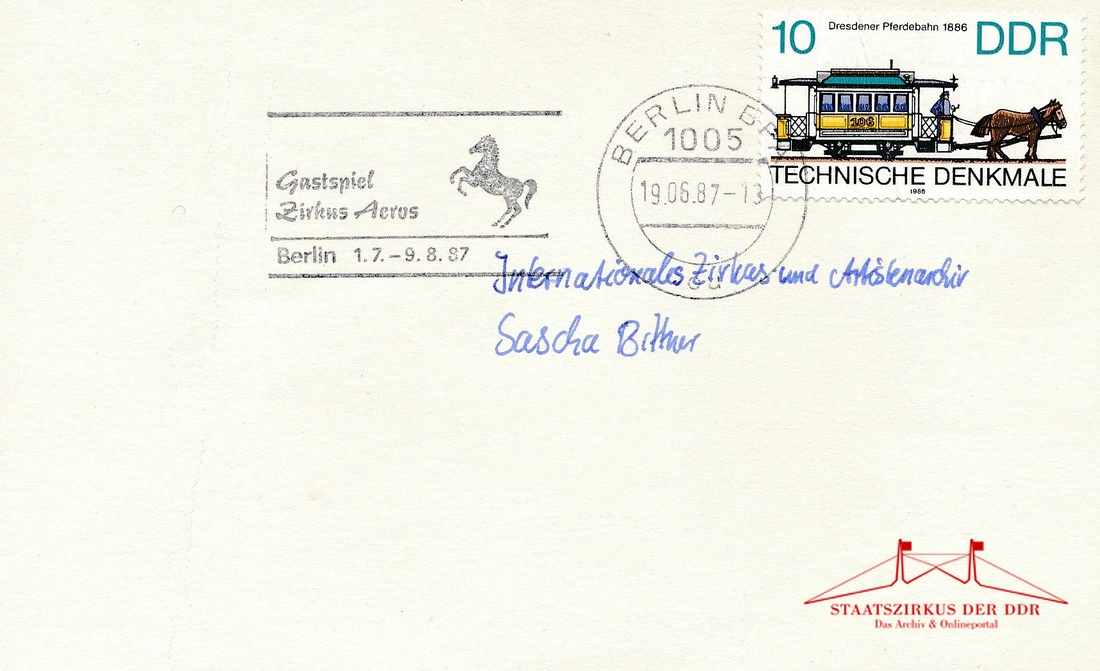 10 Dresdener Pferdebahn 1886 DDR
106
TECHNISCHE DENKMALE
1986
BERLIN
1005
19.06.87-13
Gastspiel
Zirkus Aeros
Berlin 1.7.-9.8.87
Internationales Zirkus und Artistenarchiv
Sascha Bittner
STAATSZIRKUS DER DDR
Das Archiv & Onlineportal